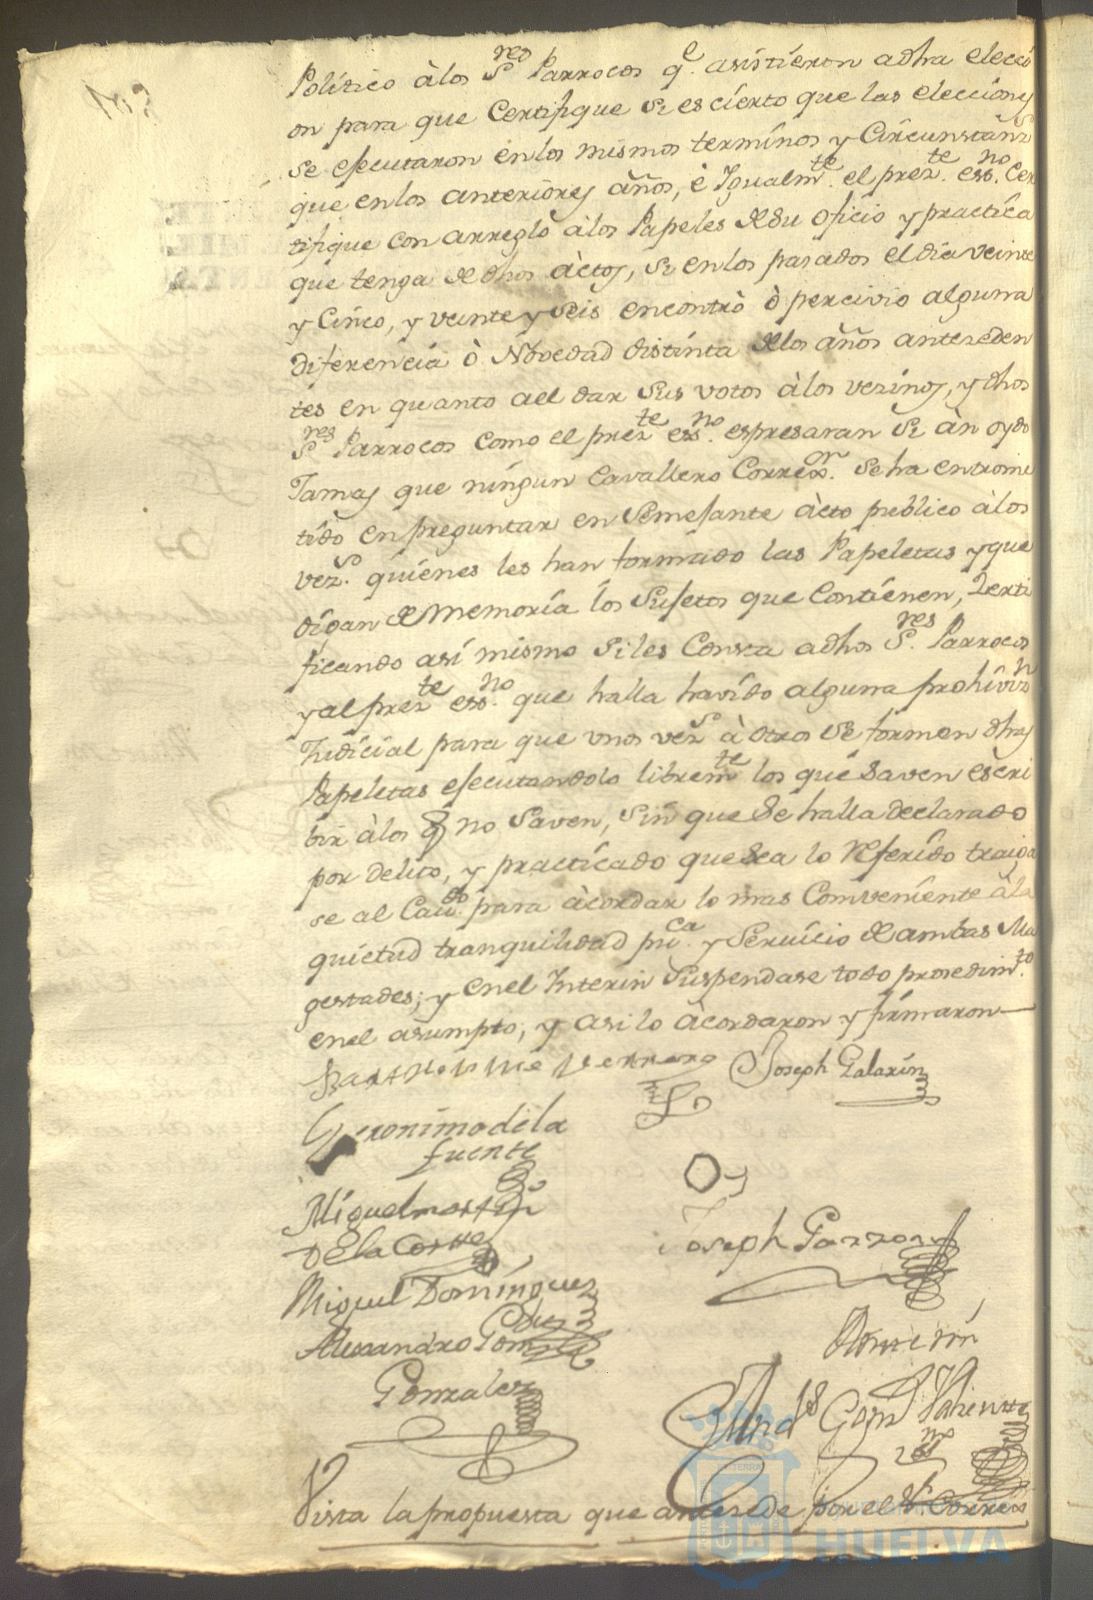 Politico àlos S.res Parrocos q.e asistieron adha elecci
on para que Certifique si es cierto que las elecciones
se ejecutaron en los mismos terminos y Circunstan.s
que en los anteriores años, è Igualm.te el prez.te ess.no Cer
tifique con arreglo àlos Papeles de su oficio y practica
que tenga de dhos àctos, si en los pasados el dia veinte
y Cinco, y veinte y seis encontrò ò percivio alguna
diferencia ò Novedad distinta de los años anteseden
tes en quanto a el dar sus votos àlos vezinos, y dhos
S.res Parrocos como el prez.te ess.no espresaran si àn oydo
Jamas que ningun Cavallero Correx.or se ha entrome
tido en preguntar en semejante àcto publico àlos
vez.s quienes les han formado las Papeletas y que
digan de memoria los sujetos que Contienen, Zerti
ficando asi mismo si les Consta adhos S.res Parrocos
y al prez.te ess.no que halla havido alguna prohiviz.n
Judicial para que unos vez.s à otros se formen dhas
Papeletas ejecutandolo librem.te los que saven escri
bir àlos q no saven, sin que se halla declarado
por delito, y practicado que sea lo referido traiga
se al Cav.do para àcordar lo mas Comveniente à la
quietud tranquilidad pu.ca y servicio de ambas Ma
gestades; y en el Interin suspendase todo prosedim.to
en el asumpto, y asi lo àcordaron y firmaron
Joseph Galarin
Geronimo de la
fuente
Miguel martin
De la Corte
Joseph Garzon
Miguel Domingues
Alexandro Gomez
Gonzalez
And.s Gom
Vista la propuesta que antesede por el S.r Correx
HUELVA